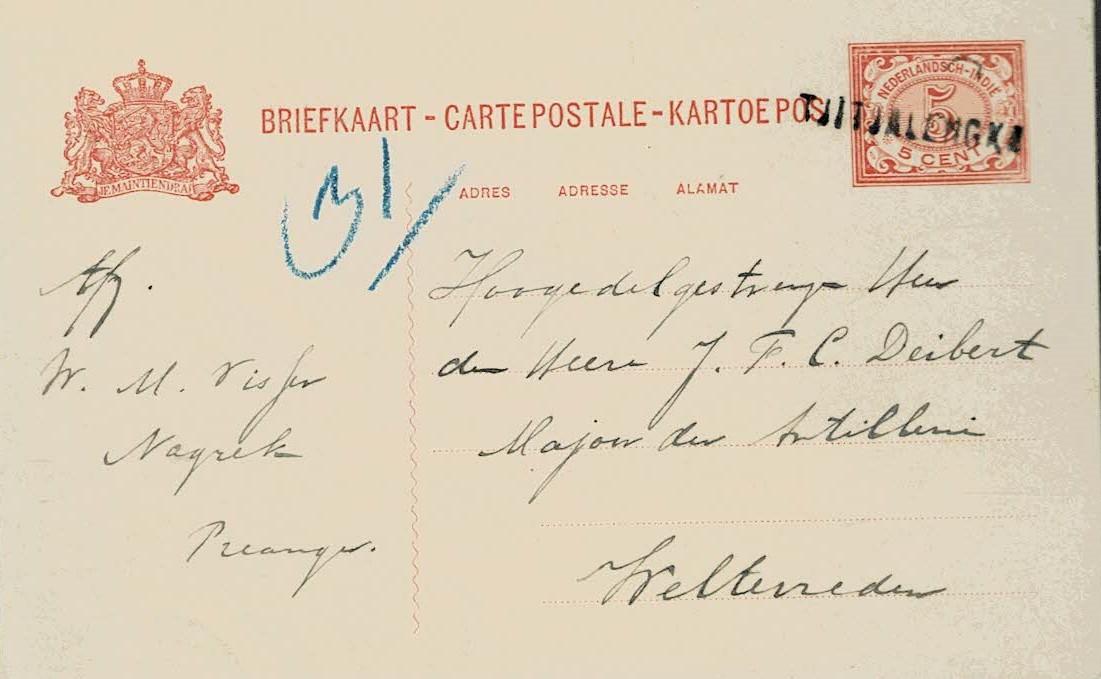 BRIEFKAART - CARTE POSTALE - KARTOE POS
NEDERLANDSCH-INDIË
5
5 CENT
TJITJALENGKA
JE MAINTIENDRAI
ADRES ADRESSE ALAMAT
31/
Afz.
W. M. Visser
Nagrek
Preanger.
Hoogedelgestrenge Heer
den Heere J. F. C. Deibert
Majoor der Artillerie
Weltevreden